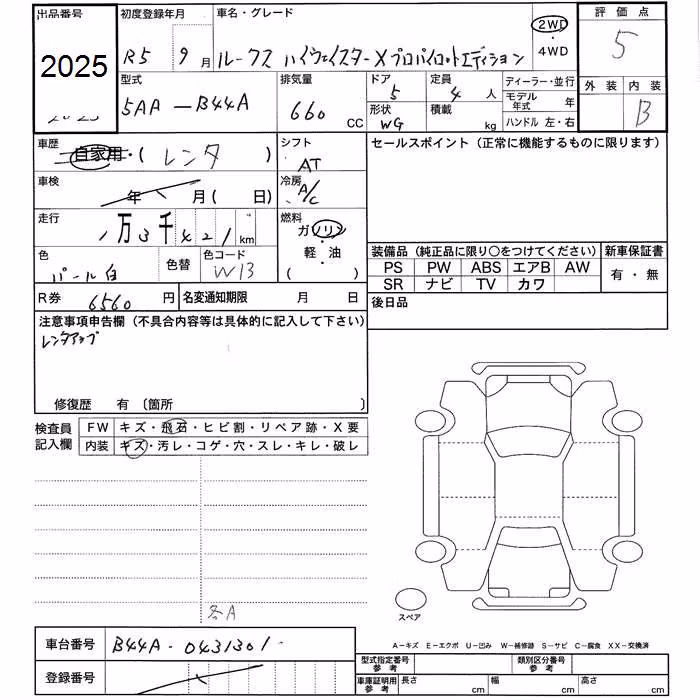 出品番号 初度登録年月 車名・グレード 2WD・4WD 評価点
2025 R5年 9月 ルークス ハイウェイスターXプロパイロットエディション 5
型式 排気量 ドア 定員 ディーラー・並行 外装 内装
5AA-B44A 660 CC 5 4人 モデル年式 年 B
形状 積載 ハンドル 左・右
WG kg
車歴 自家用・(レンタ) シフト AT セールスポイント(正常に機能するものに限ります)
車検 年 月(日) 冷房 A/C
走行 1万3千421km 燃料 ガソリン・軽油( )
色 パール白 色替 色コード W13
装備品(純正品に限り○をつけてください) 新車保証書
PS PW ABS エアB AW 有・無
SR ナビ TV カワ
R券 6560円 名変通知期限 月 日 後日品
注意事項申告欄(不具合内容等は具体的に記入して下さい)
レンタアップ
修復歴 有〔箇所 〕
検査員記入欄 FW キズ・飛石・ヒビ割・リペア跡・X要
内装 キズ・汚レ・コゲ・穴・スレ・キレ・破レ
スペア
各A
車台番号 B44A-0431301
A-キズ E-エクボ U-凹み W-補修跡 S-サビ C-腐食 XX-交換済
登録番号
型式指定番号参考 類別区分番号参考
車庫証明用参考 長さ cm 幅 cm 高さ cm